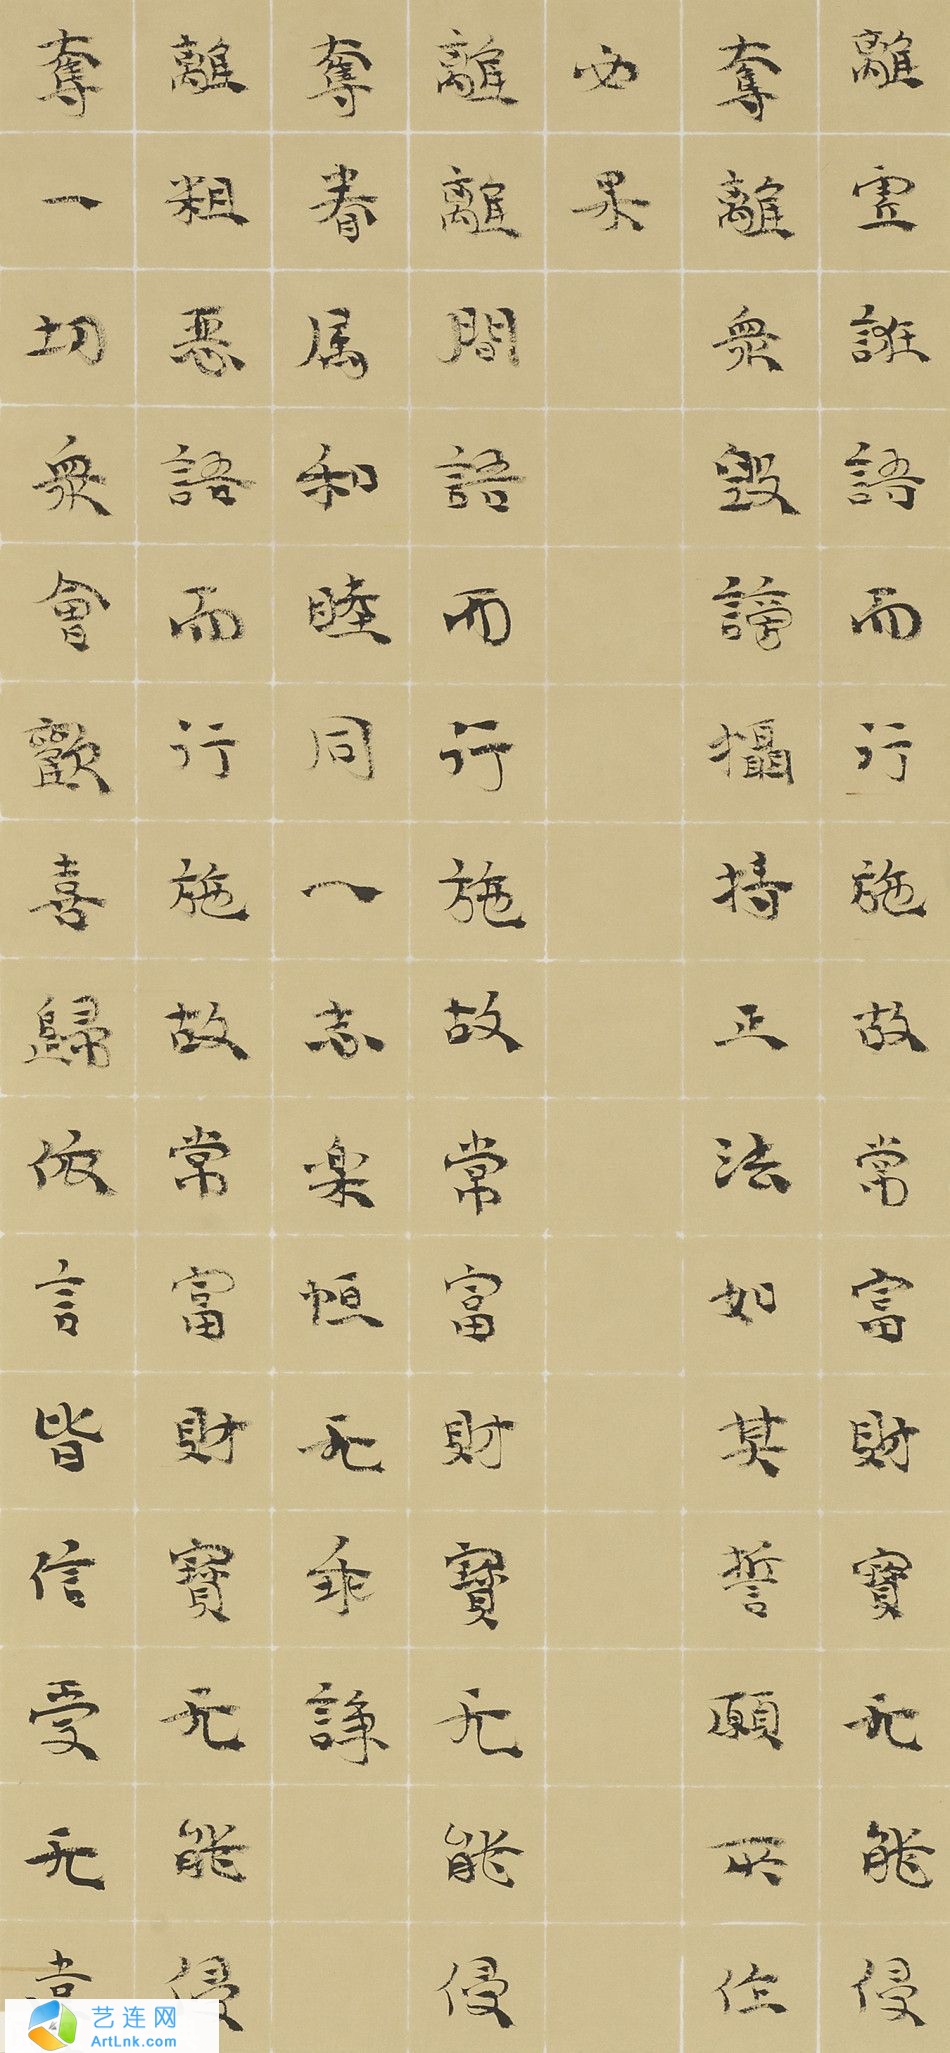 離虚誑語而行施故常富財寶无能侵
奪離衆毀謗攝持正法如其誓願所作
必果
離離間語而行施故常富財寶无能侵
奪眷属和睦同一志楽恒无乖諍
離粗惡語而行施故常富財寶无能侵
奪一切衆會歡喜歸依言皆信受无
艺连网
ArtLnk.com